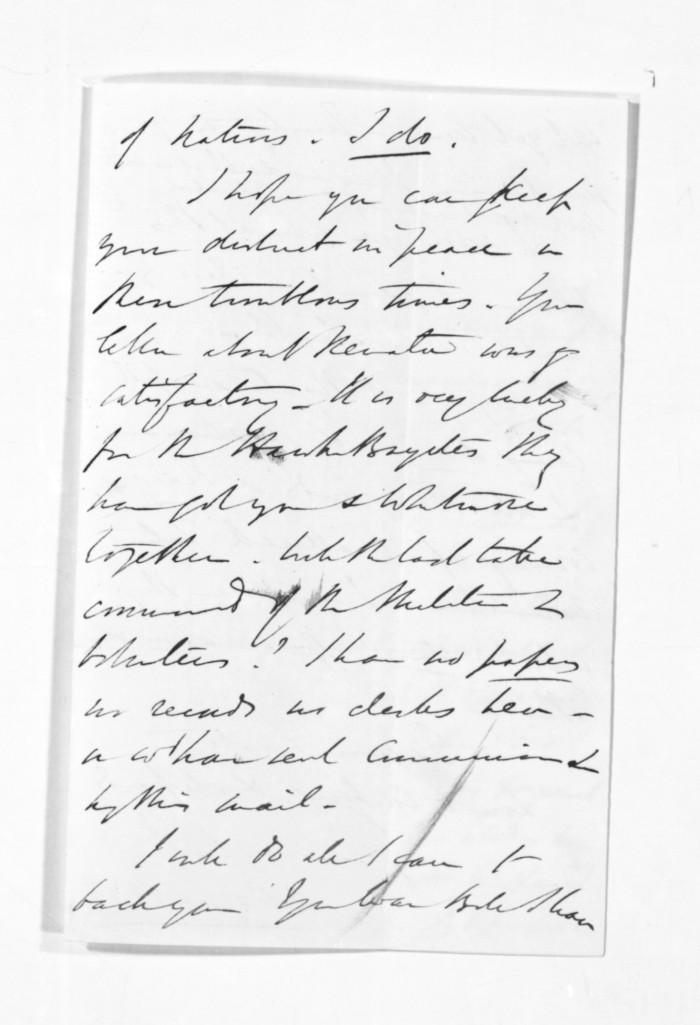 of natives. I do.
I hope you can keep
your district in peace in
these troublous times. Your
letter about Renata was
satisfactory. It is very lucky
for the Hawke's Bayites they
have got you & Whitmore
together. Will the last take
command of the Militia &
Volunteers? I have no papers
no records no clerks here -
or wd have sent Commission
by this mail -
I will do all I can to
back you